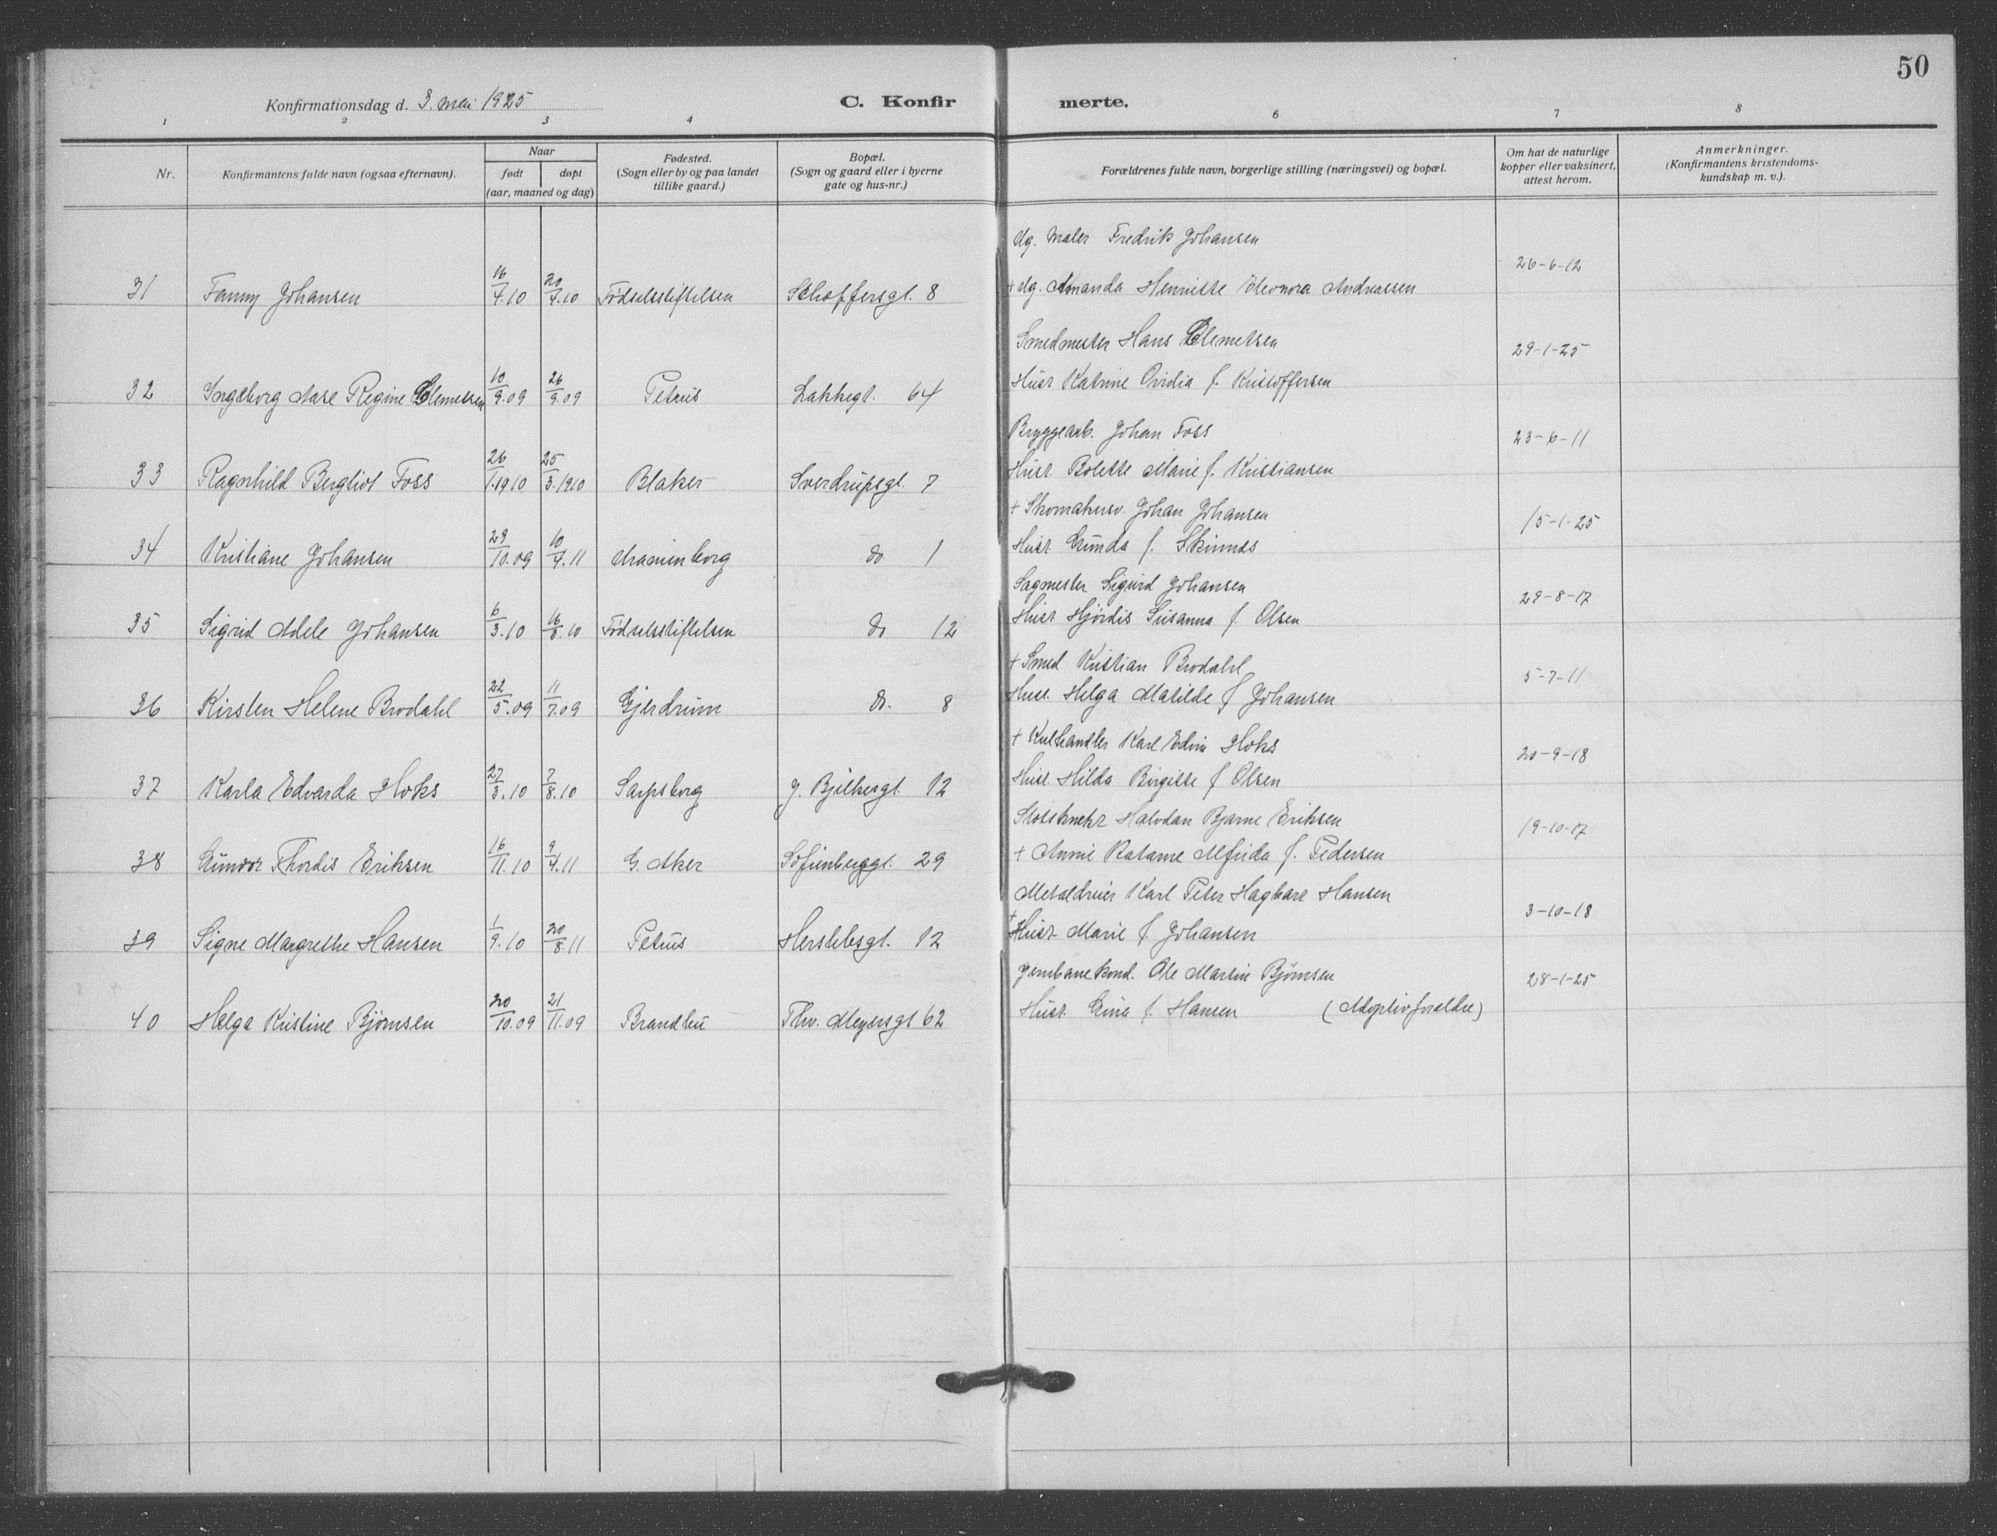 50
Konfirmationsdag d. 3. mai 1925
C. Konfir
merte.
1 2 3 4 6 7 8
Nr.
Konfirmantens fulde navn (ogsaa efternavn).
Naar
født døpt
(aar, maaned og dag)
Fødested.
(Sogn eller by og paa landet
tillike gaard.)
Bopæl.
(Sogn og gaard eller i byerne
gate og hus-nr.)
Forældrenes fulde navn, borgerlige stilling (næringsvei) og bopæl.
Om hat de naturlige
kopper eller vaksinert,
attest herom.
Anmerkninger.
(Konfirmantens kristendoms-
kundskap m. v.).
Ug. Maler Fredrik Johansen
26-6-12
31 Fanny Johansen 16/4.10 20/4.10 Fødselsstiftelsen Schoffersgt. 8 + Ug. Amanda Henriette Eleonora Andreassen
Smedmester Hans Clemetsen
29-1-25
32 Ingeborg Aase Regine Clemetsen 10/9.09 26/9.09 Petrus Lakkegt. 64 Hust Katrine Ovidia f. Kristoffersen
Bryggearb. Johan Foss
23-6-11
33 Ragnhild Bergliot Foss 26/1.1910 25/3.1910 Blaker Sverdrupsgt. 7 Hust Bolette Marie f. Kristiansen
+ Skomakersv. Johan Johansen
15-1-25
34 Kristiane Johansen 29/10.09 10/4.11 Marienborg do 1 Hust Gunda f.
Sagmester Sigurd Johansen
29-8-17
35 Sigrid Adele Johansen 6/3.10 16/8.10 Fødselsstiftelsen do 12 Hust Hjørdis Susanna f. Olsen
+ Smed Kristian Brodahl
5-7-11
36 Kirsten Helene Brodahl 22/5.09 11/7.09 Gjerdrum do. 8 Hust. Helga Matilde f Johansen
+ Kulhandler Karl Edvin Hoks
20-9-18
37 Karla Edvarda Hoks 27/3.10 7/8.10 Sarpsborg J. Bjelkesgt. 12 Hust. Hilda Birgitte f Olsen
Slotsknekt Halvdan Bjarne Eriksen
19-10-17
38 Gunvor Thordis Eriksen 16/11.10 9/4.11 G. Aker Sofienberggt. 29 + Annie Katarne Alfrida f. Pedersen
Metaldreier Karl Peter Hagbart Hansen
3-10-18
39 Signe Margrethe Hansen 1/9.10 20/8.11 Petrus Herslebsgt. 12 + Hust Marie f. Johansen
Jernbanekond. Ole Martin Bjørnsen
28-1-25
40 Helga Kristine Bjørnsen 20/10.09 21/11.09 Brandbu Thv. Meyersgt 62 Hust. Gina f. Hansen (Adoptivforældre)